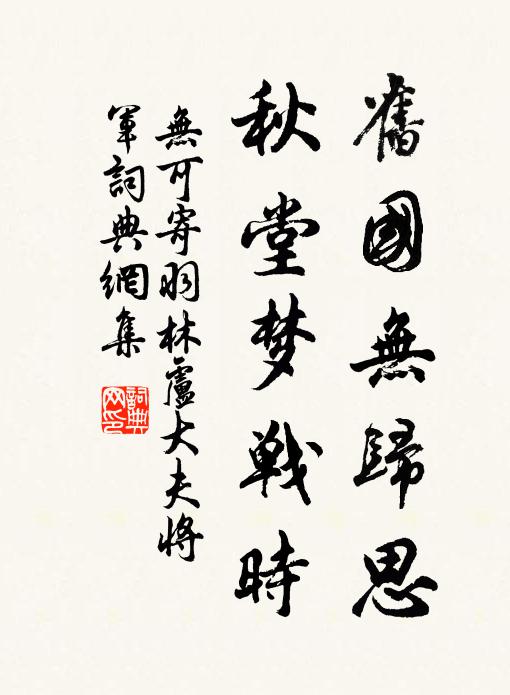 舊國無歸思
秋堂梦戰時
無可寄羽林盧大夫將
軍詞典網集
詞典
网印